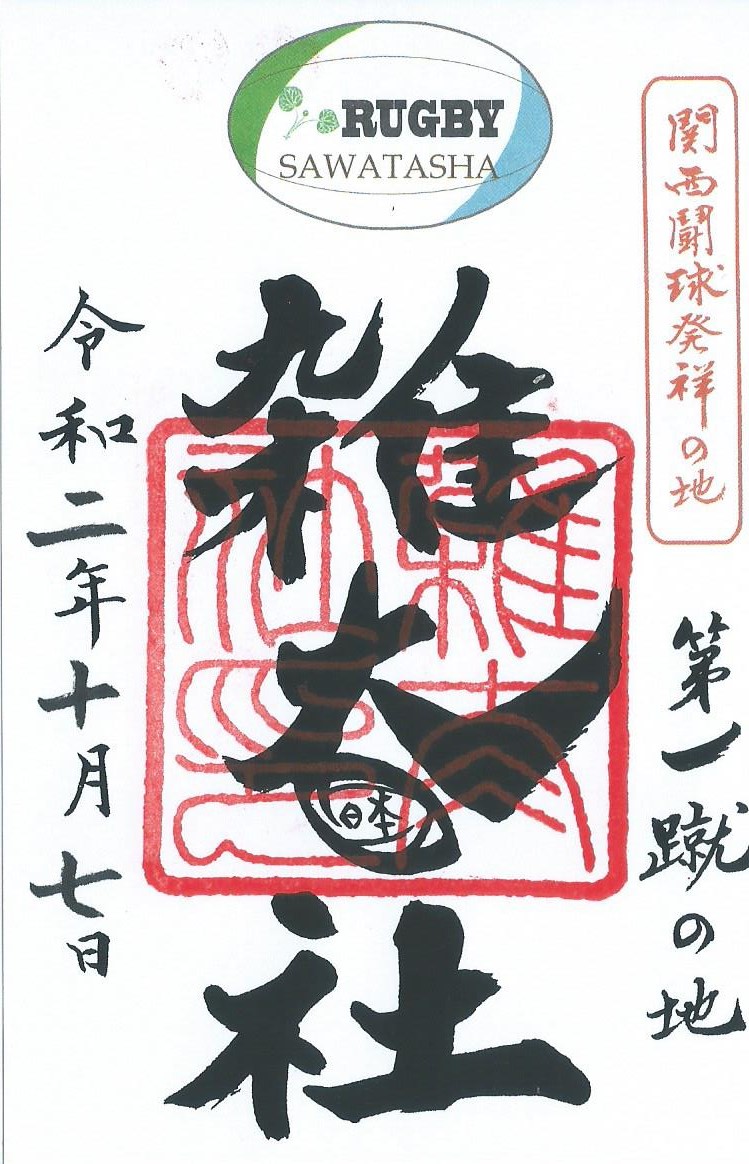 RUGBY
SAWATASHA
関西闘球発祥の地
第一蹴の地
雑太社
日本
令和二年十月七日